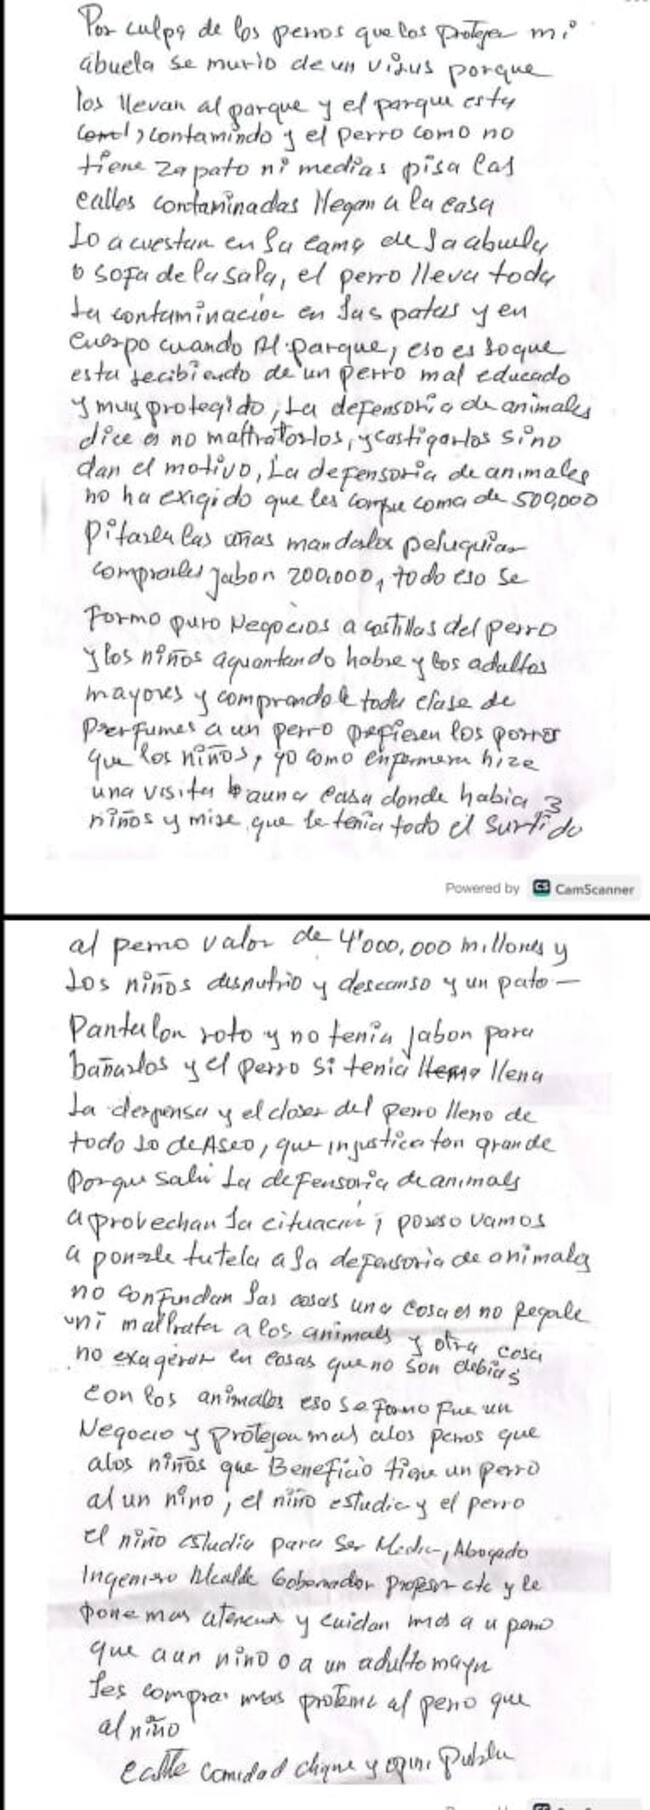 Por culpa de los perros que los protejen mi
abuela se murio de un virus porque
los llevan al parque y el parque esta
contamindo y el perro como no
tiene zapato ni medias pisa las
calles contaminadas llegan a la casa
Lo acuestan en la cama de la abuela
o sofa de la sala, el perro lleva toda
La contaminación en las patas y en
cuerpo cuando al parque, eso es lo que
esta recibiendo de un perro mal educado
y muy protegido, La defensoria de animales
dice es no maltratarlos, y castigarlos sino
dan el motivo, La defensoria de animales
no ha exigido que les compre coma de 500,000
Pitarle las uñas mandalos peluquiar
comprarles jabon 200.000, todo eso se
Formo puro Negocios a costillas del perro
y los niños aguantando habre y los adultos
mayores y comprandole toda clase de
perfumes a un perro prefieren los porros
que los niños, yo como enfermera hize
una visita a una casa donde habia 3
niños y mire que le tenia todo el surtido
Powered by CS CamScanner
al perro valor de 4'000,000 millones y
Los niños disnutrio y descanso y un pato-
Pantalon roto y no tenia jabon para
bañarlos y el perro si tenia llena
La despensa y el closer del perro lleno de
todo lo de Aseo, que injustica tan grande
Porque salio La defensoria de animals
aprovechan la cituación, poreso vamos
a ponerle tutela a la defensoria de animales
no confundan las cosas una cosa es no pegale
ni maltrata a los animals y otra cosa
no exageren en cosas que no son debias
con los animales eso se formo fue un
Negocio y protejen mas alos perros que
alos niños que Beneficio tiene un perro
al un nino, el niño estudia y el perro
el niño estudia para ser Medico, Abogado
Ingeniero Alcalde Gobernador profesor etc y le
pone mas atencion y cuidan mas a u perro
que a un nino o a un adulto mayor
les compran mas proteine al perro que
al niño
calle comidad y Publi